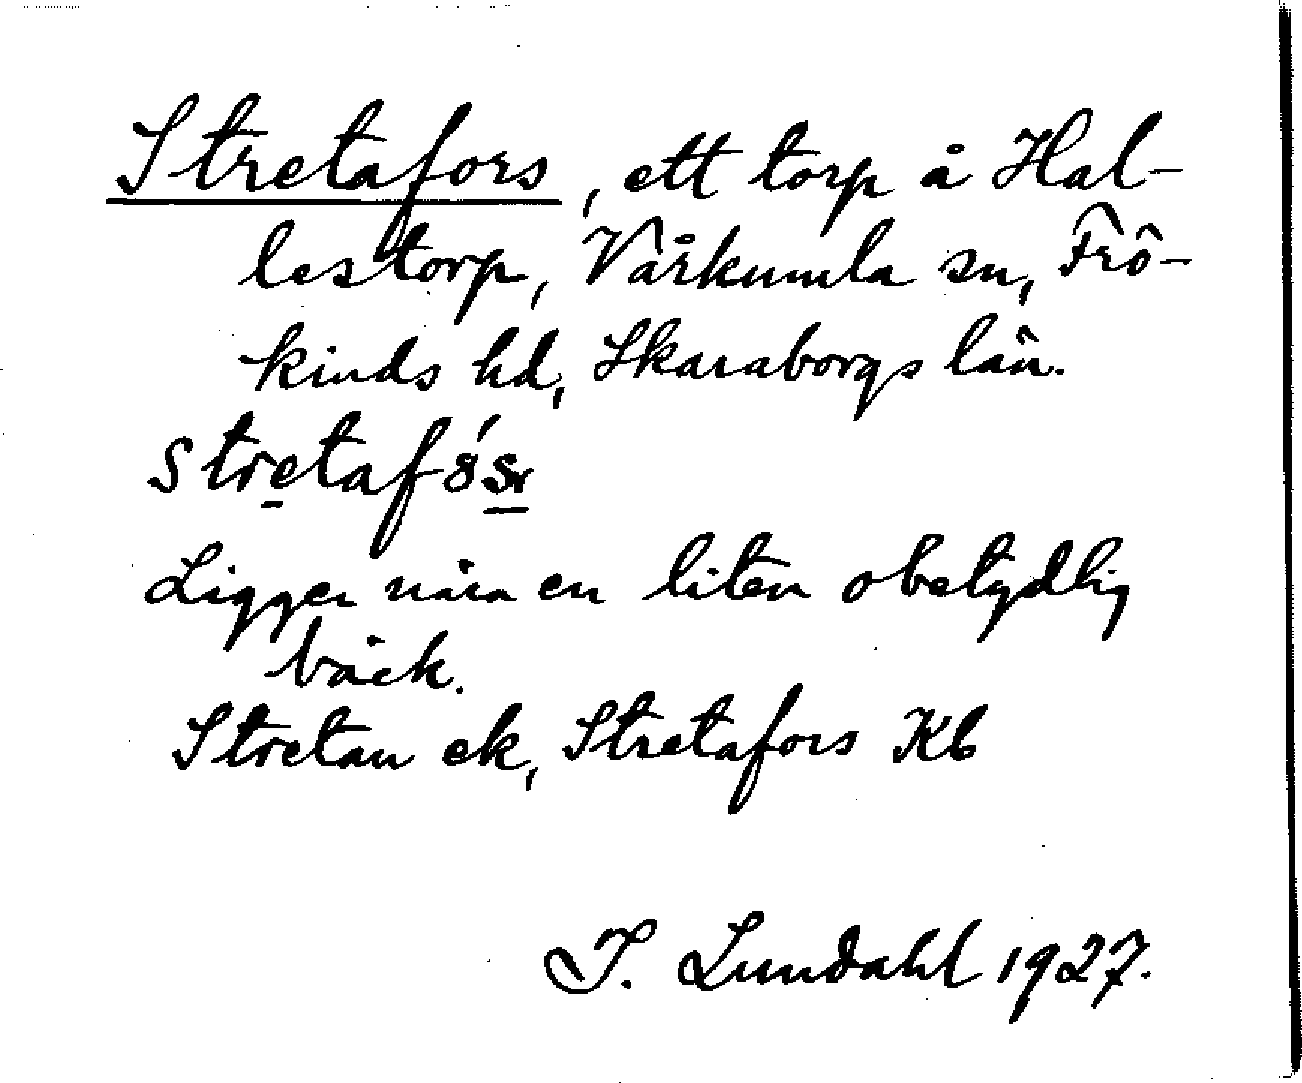 Stretafors, ett torp å Hal-
lestorp, Vårkumla sn, Frö-
kinds hd, Skaraborgs län.
Ligger nära en liten obetydlig
bäck.
Stretan ek, Stretafors Kb
I. Lundahl 1927.